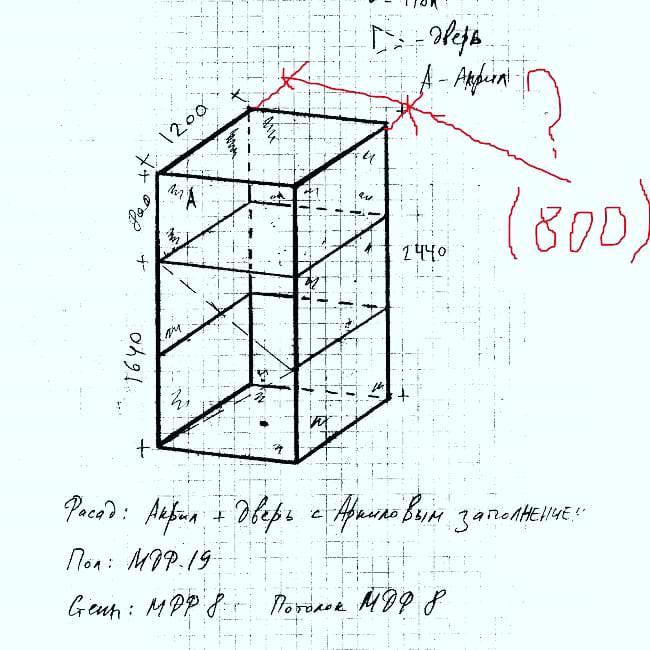 - Пол
- Дверь
А - Акрил
?
1200
А
800
(800)
2440
1640
Фасад: Акрил + Дверь с Акриловым заполнение:
Пол: МДФ 19
Стены: МДФ 8 Потолок МДФ 8